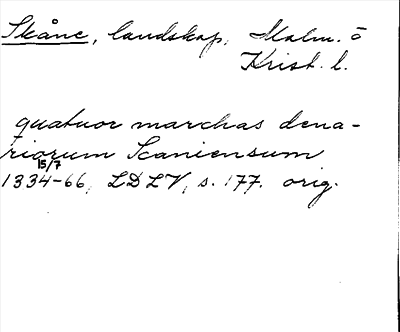 Skåne, landskap, Malm. o
Krist. l.
quatuor marchas dena-
riorum Scaniensum
15/7
1334-66, LDLV, s. 177. orig.